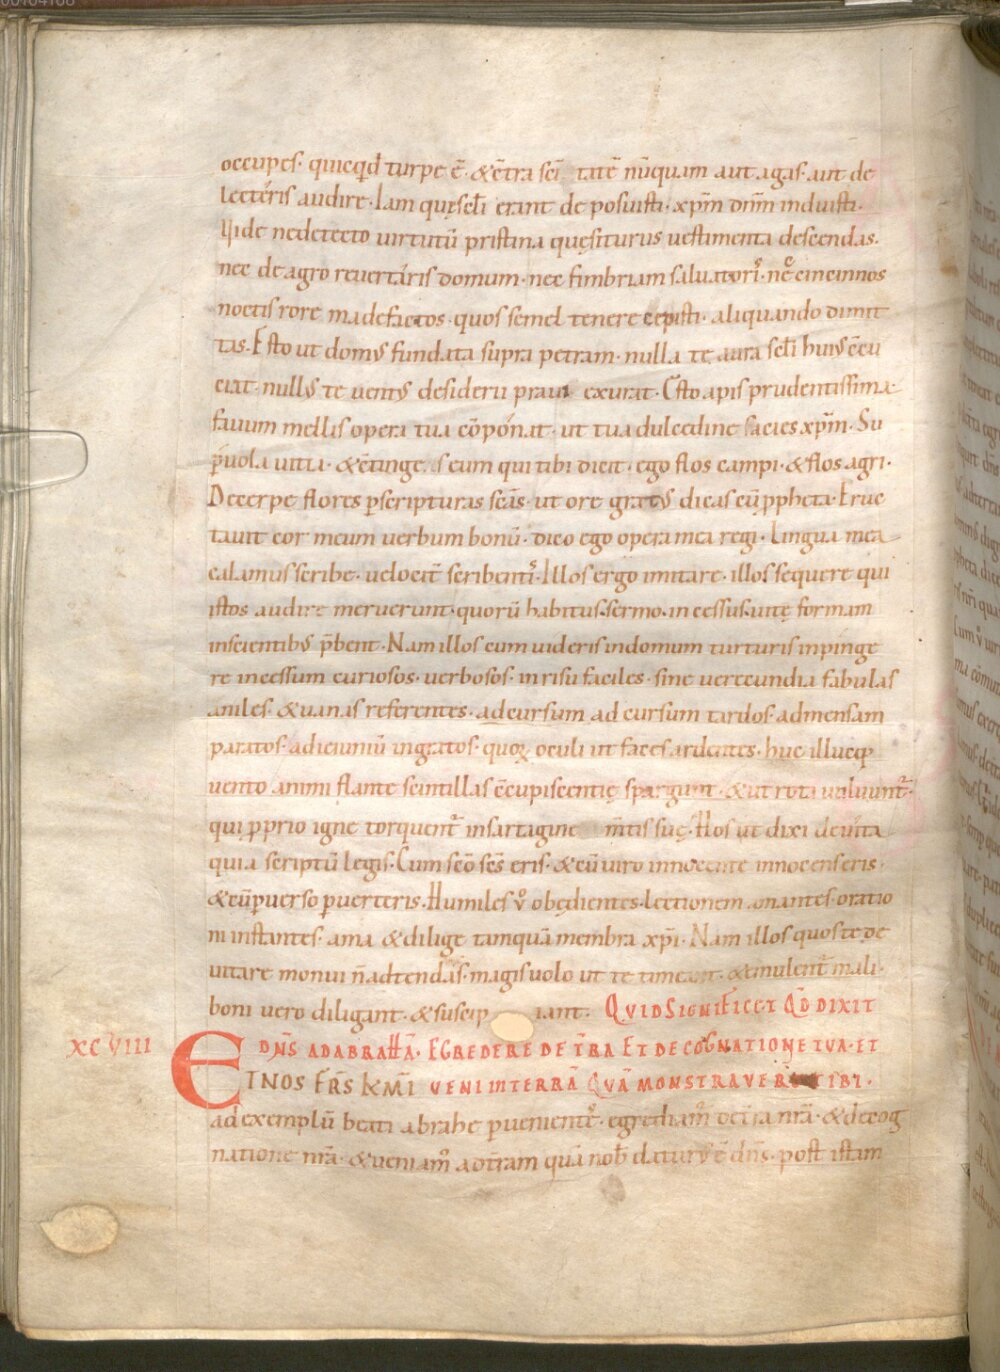 occupes· quicq̄d turpe ē· & ext̄ra sc̄i tatē nūquam aut agas· aut de
lecteris audire· Iam quę sc̄li erant deposuisti· xp̄m dn̄m induisti·
Vide ne detecto uirtutū pristina quęsiturus uestimenta descendas·
nec de agro reuertaris domum· nec fimbriam saluatoris· nec cincinnos
noctis rore madefactos· quos semel tenere cepisti· aliquando dimit
tas· Esto ut domꝰ fundata supra petram· nulla te aura sc̄li huiꝰ
ciat· nullꝰ te uentꝰ desiderii praui exurat· Esto apis prudentissima·
fauum mellis opera tua cōponat· ut tua dulcedine sacies xp̄m· Su
p̄uola uitia· & cum qui tibi dicit· ego flos campi· & flos agri·
Decerpe flores p̄ scripturas scās· ut ore gratꝰ dicas cū ppheta· Eruc
tauit cor meum uerbum bonū· dico ego opera mea regi· Lingua mea
calamus scribe· uelocit̄ scribentis· Illos ergo imitare· illos sequere qui
istos audire meruerunt· quorū habitus· sermo· incessus· uitę formam
inscientibꝰ p̄bent· Nam illos cum uideris in domum turturis inpinge
re incessum curiosos· uerbosos· in risu faciles· sine uerecundia fabulas
aniles· & uanas referentes· ad cursum ad cursum tardos· ad mensam
paratos· ad ieiuniū ingratos· quoꝝ oculi ut faces ardentes· huc illucq;
uento animi flante scintillas cupiscentię spargunt· & ut rota uoluunt̄·
qui pprio igne torquent̄ in sartagine m̄tis suę· Hos ut dixi deuita
quia scriptū legis· Cum scō scs̄ eris· & cū uiro innocente innocens eris·
& cū puerso puerteris· Humiles ů obędientes· lectionem amantes· oratio
ni instantes· ama & dilige tamquā membra xp̄i· Nam illos quos te de
uitare monui n̄ adtendas· magis uolo ut te timeant· & emulent̄ mali·
boni uero diligant· & suscip iant· QVID SIGNIFICET QD̄ DIXIT
XCVIII
DN̄S AD ABRAHĀ· EGREDERE DE TR̄RA ET DE COGNATIONE TVA· ET
ET NOS FR̄S K̄MI VENI IN TERRĀ QVĀ MONSTRAVERO TIBI·
ad exemplū beati abrahę puenientes· egrediam̄ de tr̄ra nr̄a· & de cog
natione nr̄a· & ueniam̄ ad tr̄ram quā nob̄ daturꝰ ē dn̄s· post istam